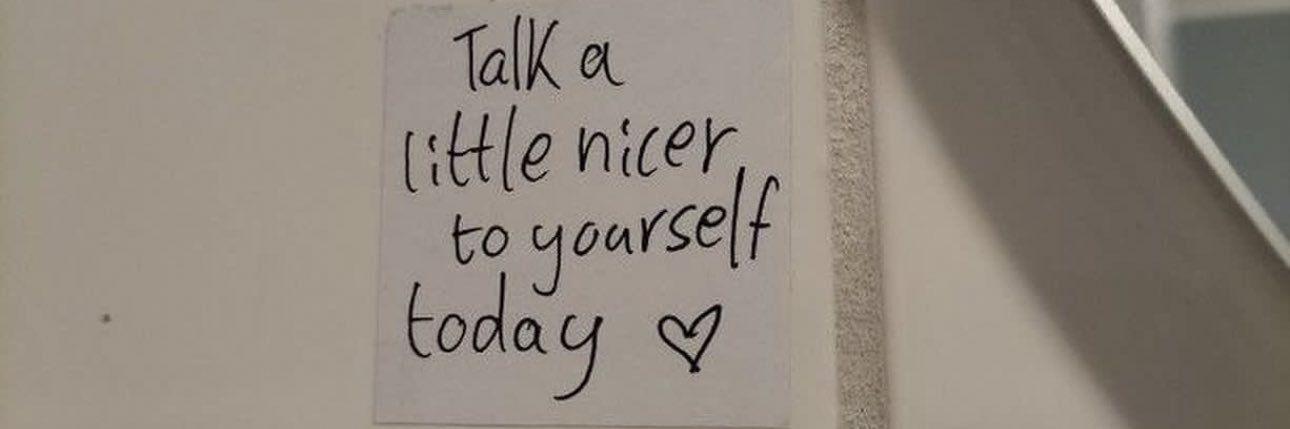 Talk a
little nicer
to yourself
today ♡